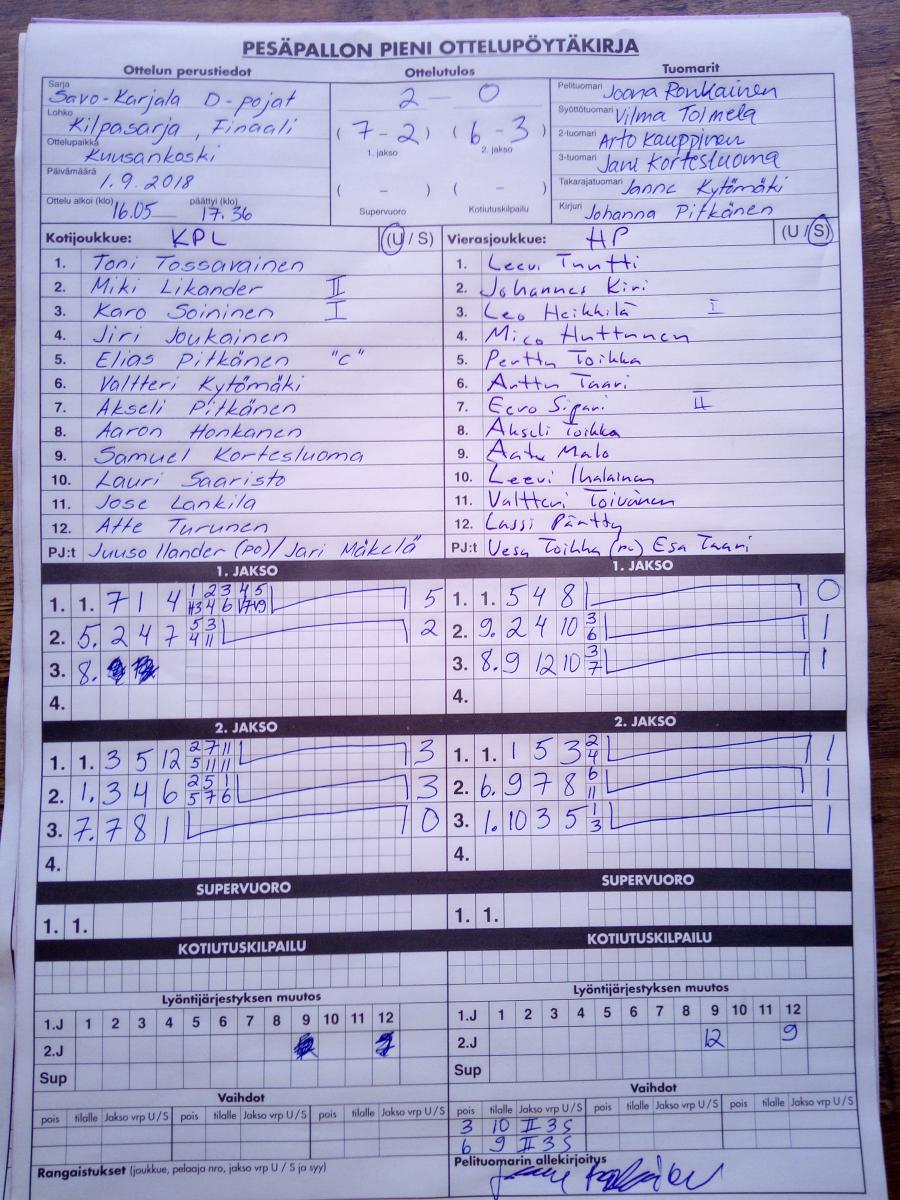 PESÄPALLON PIENI OTTELUPÖYTÄKIRJA
Ottelun perustiedot
Sarja Savo-Karjala D-pojat
Lohko Kilpasarja, Finaali
Ottelupaikka Kuusankoski
Päivämäärä 1.9.2018
Ottelu alkoi (klo) 16.05 päättyi (klo) 17.36
Ottelutulos
2 - 0
(7 - 2) (6 - 3)
1. jakso 2. jakso
( - ) ( - )
Supervuoro Kotiutuskilpailu
Tuomarit
Pelituomari Joona Ronkainen
Syöttötuomari Vilma Tolmela
2-tuomari Arto Kauppinen
3-tuomari Jani Kortesluoma
Takarajatuomari Janne Kytömäki
Kirjuri Johanna Pitkänen
Kotijoukkue: KPL (U / S)
1. Toni Tossavainen
2. Miki Likander II
3. Karo Soininen I
4. Jiri Joukainen
5. Elias Pitkänen "C"
6. Valtteri Kytömäki
7. Akseli Pitkänen
8. Aaron Honkanen
9. Samuel Kortesluoma
10. Lauri Saaristo
11. Jose Lankila
12. Atte Turunen
PJ:t Juuso Ilander (po) / Jari Mäkelä
Vierasjoukkue: HP (U / S)
1. Leevi Tuutti
2. Johannes Kiri
3. Leo Heikkilä I
4. Mico Huttunen
5. Perttu Toikka
6. Arttu Taari
7. Eero Sipari II
8. Akseli Toikka
9. Aatu Malo
10. Leevi Ihalainen
11. Valtteri Toivanen
12. Lassi Pärtty
PJ:t Vesa Toikka Esa Taari
1. JAKSO
1. 1. 7 1 4 1 2 3 4 5 5
2. 5. 2 4 7 5 3 2
4 11
3. 8.
4.
2. JAKSO
1. 1. 3 5 12 2 7 11 3
5 11 11
2. 1. 3 4 6 2 5 1 3
5 7 6
3. 7. 7 8 1 0
4.
SUPERVUORO
1. 1.
KOTIUTUSKILPAILU
Lyöntijärjestyksen muutos
1.J 1 2 3 4 5 6 7 8 9 10 11 12
2.J
Sup
Vaihdot
pois tilalle Jakso vrp U / S pois tilalle Jakso vrp U / S pois tilalle Jakso vrp U / S
Rangaistukset (joukkue, pelaaja nro, jakso vrp U / S ja syy)
1. JAKSO
1. 1. 5 4 8 0
2. 9. 2 4 10 3 1
6
3. 8. 9 12 10 3 1
7
4.
2. JAKSO
1. 1. 1 5 3 2 1
4
2. 6. 9 7 8 6 1
11
3. 1. 10 3 5 1 1
3
4.
SUPERVUORO
1. 1.
KOTIUTUSKILPAILU
Lyöntijärjestyksen muutos
1.J 1 2 3 4 5 6 7 8 9 10 11 12
2.J 12 9
Sup
Vaihdot
pois tilalle Jakso vrp U / S pois tilalle Jakso vrp U / S pois tilalle Jakso vrp U / S
3 10 II 3 S
6 9 II 3 S
Pelituomarin allekirjoitus